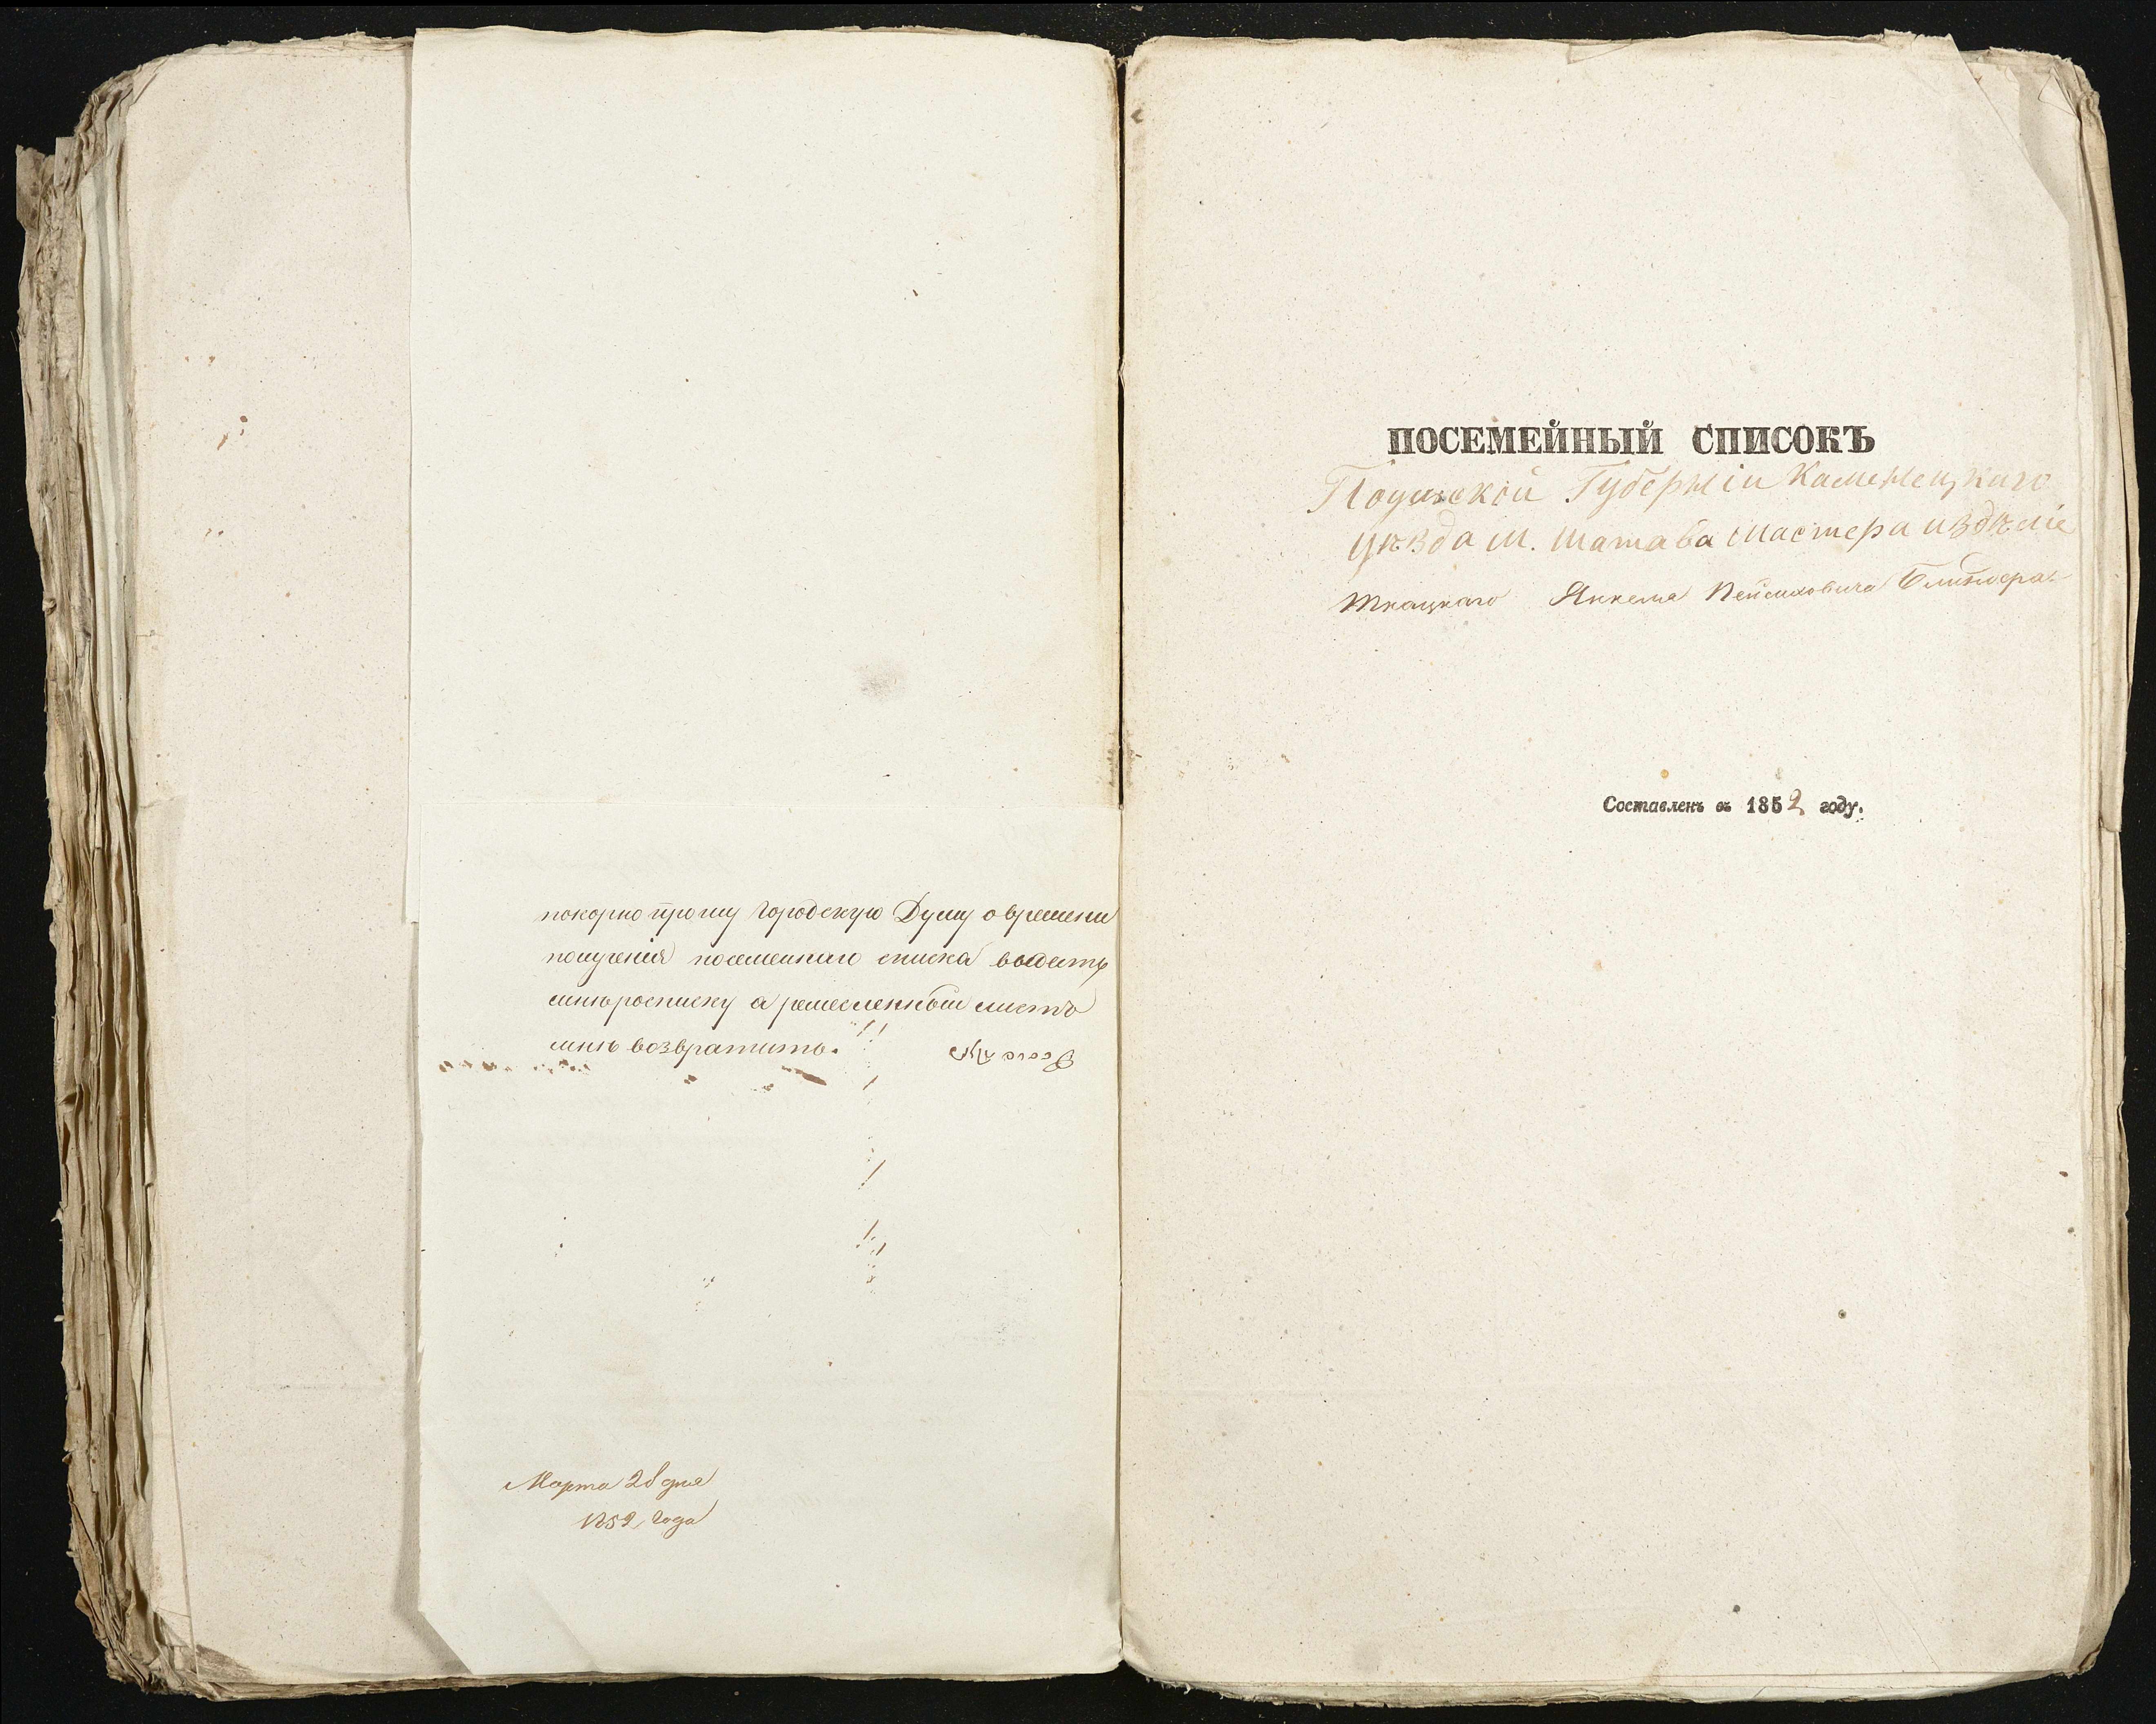 покорно прошу Городскую Думу о времени
получения посемейнаго списка выдать
мнѣ росписку а ремесленной листъ
мнѣ возвратить.
Марта 28 дня
1852 года
ПОСЕМЕЙНЫЙ СПИСОКЪ
Подилской Губерніи Каменецкаго
уѣзда м. Шатава мастера издѣлие
Ткацкаго Янкеля Пейсиховича
Составленъ въ 1852 году.